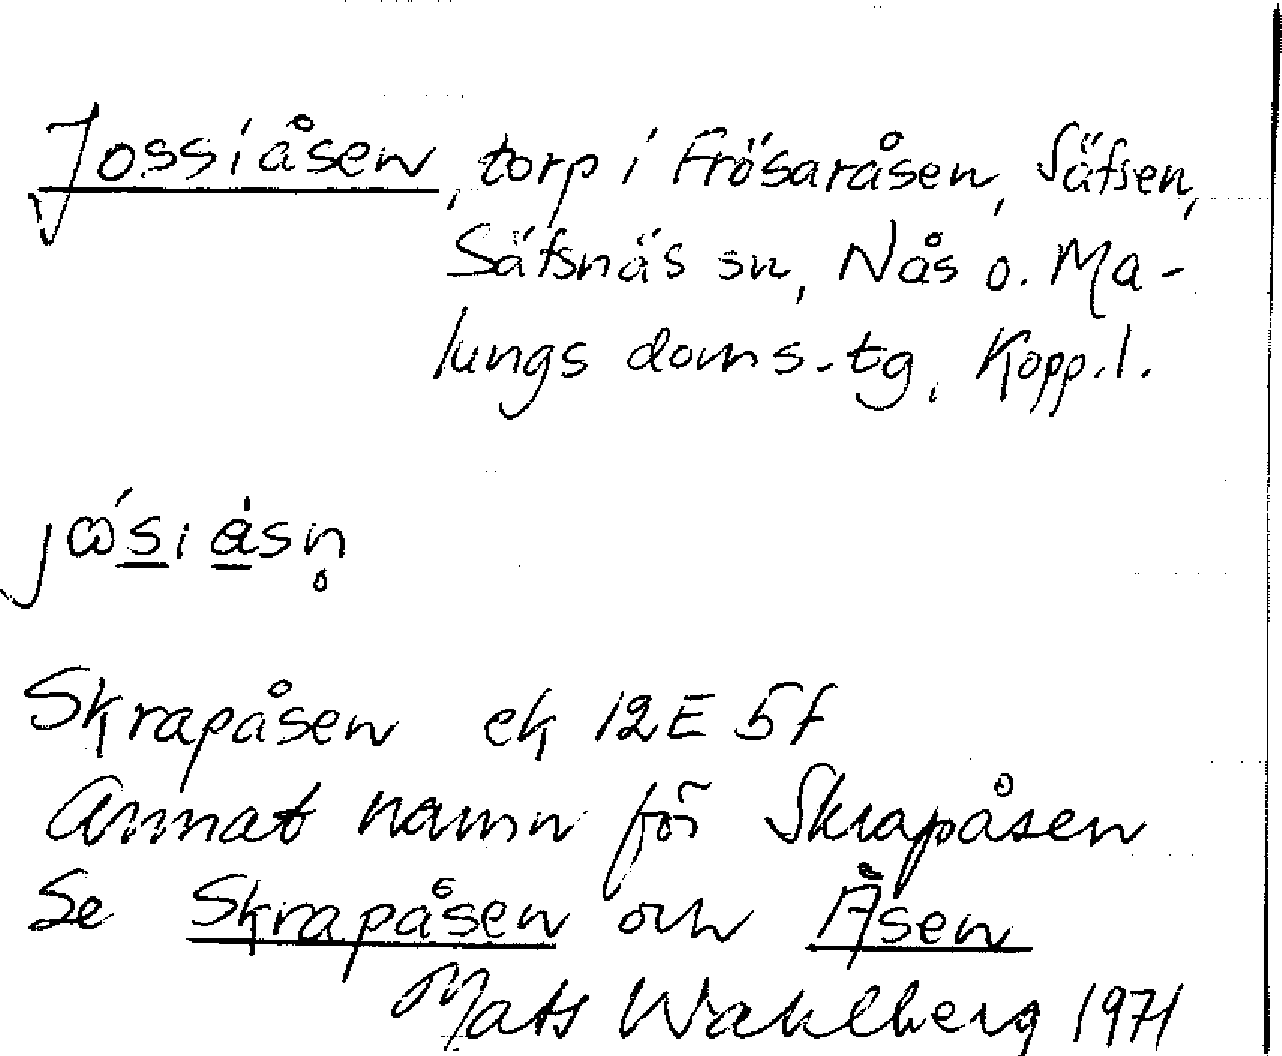 Jossiåsen, torp i Frösaråsen, Säfsen,
Säfsnäs sn, Nås o. Ma-
lungs doms.tg, Kopp.l.
Skrapåsen ek 12E 5f
Annat namn för Skrapåsen
Se Skrapåsen och Åsen
Mats Wahlberg 1971